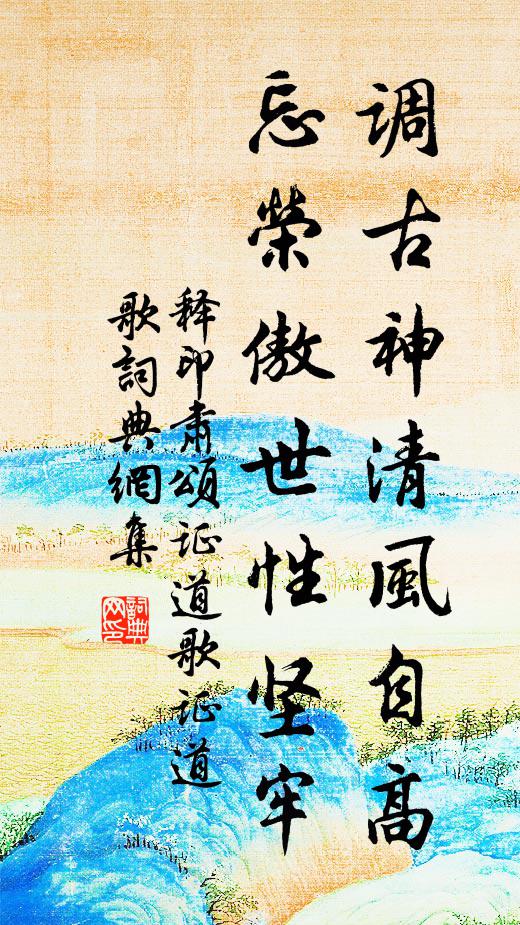 调古神清風自高
忘榮傲世性坚牢
释印肃頌证道歌证道
歌詞典網集
詞典
网印